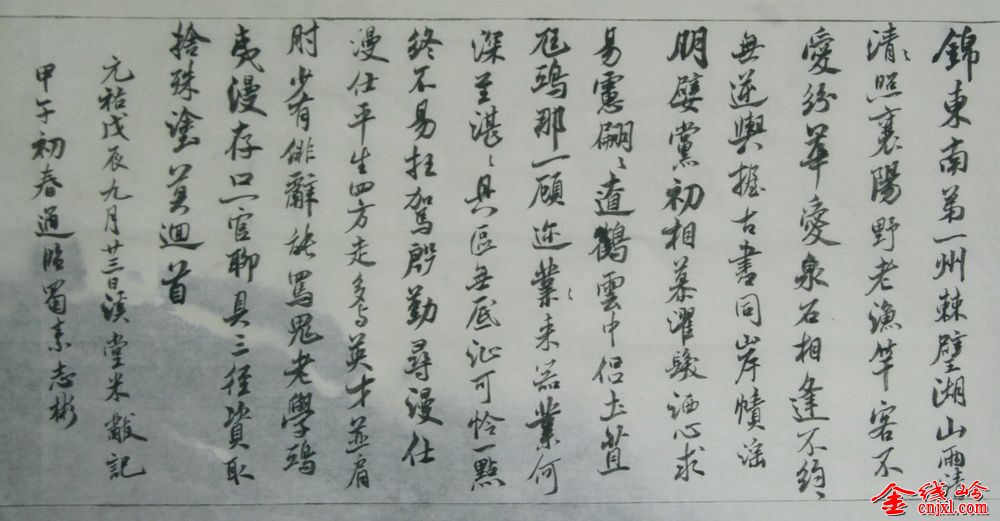 錦東南第一州棘璧湖山兩
清〻照襄陽野老漁竿客不
愛紛華愛泉石相逢不約
無逆輿握古書同岸幘滛
朋嬖黨初相慕濯髮洒心求
易慮翩〻遼鶴雲中侶土苴
尫鴟那一顧迩業〻来器業何
深至湛〻具區無底沚可怜一點
終不易枉駕殷勤尋漫仕
漫仕平生四方走多与英才並肩
肘少有俳辭能罵鬼老學鴟
夷漫存口一官聊具三徑資取
捨殊塗莫迴首
元祐戊辰九月廿三日溪堂米黻記
甲午初春通臨蜀素志彬
金线岭
cnjxl.com